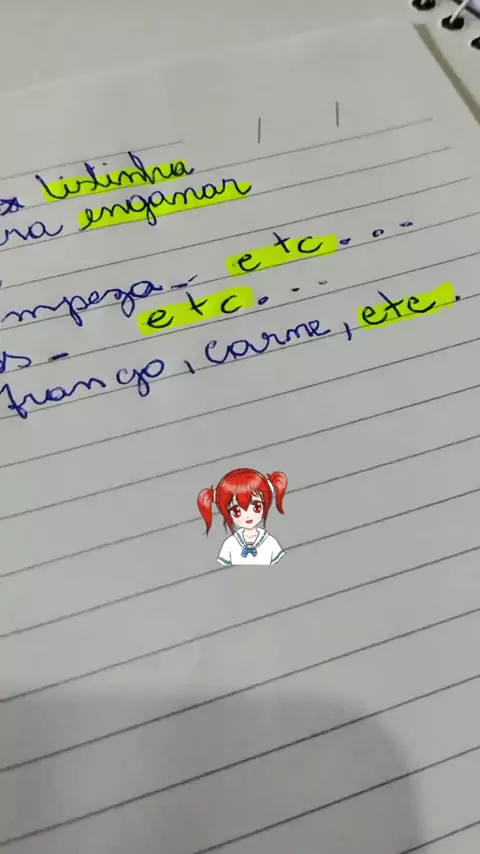 listinha
ra enganar
mpeza - etc...
s - etc...
frango, carne, etc.